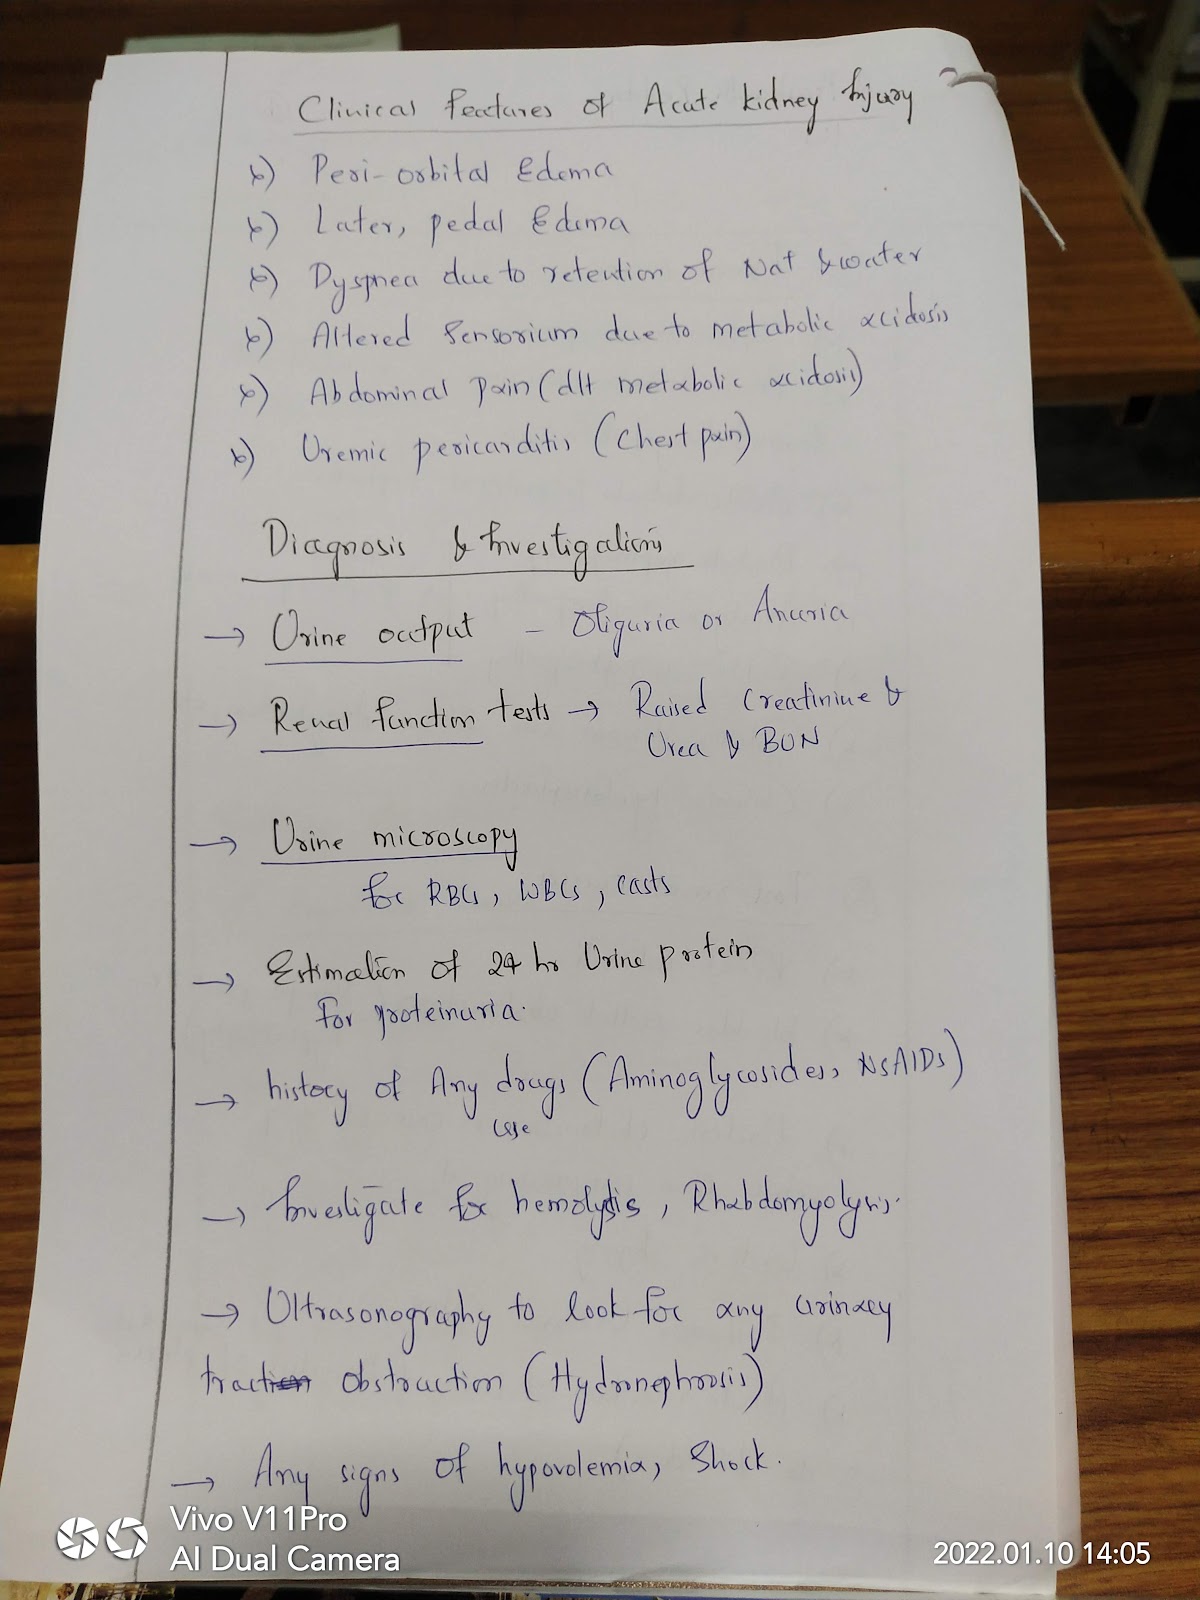 Clinical Features of Acute kidney Injury
*) Peri-orbital Edema
*) Later, pedal Edema
*) Dyspnea due to retention of Na+ & water
*) Altered Sensorium due to metabolic acidosis
*) Abdominal Pain (d/t metabolic acidosis)
*) Uremic pericarditis (Chest pain)
Diagnosis & Investigations
→ Urine output - Oliguria or Anuria
→ Renal function tests → Raised Creatinine &
Urea & BUN
→ Urine microscopy
for RBCs, WBCs, casts
→ Estimation of 24 hr Urine protein
For proteinuria.
→ history of Any drugs (Aminoglycosides, NSAIDs)
use
→ Investigate for hemolysis, Rhabdomyolysis.
→ Ultrasonography to look for any urinary
tract obstruction (Hydronephrosis)
→ Any signs of hypovolemia, Shock.
Vivo V11Pro
AI Dual Camera
2022.01.10 14:05